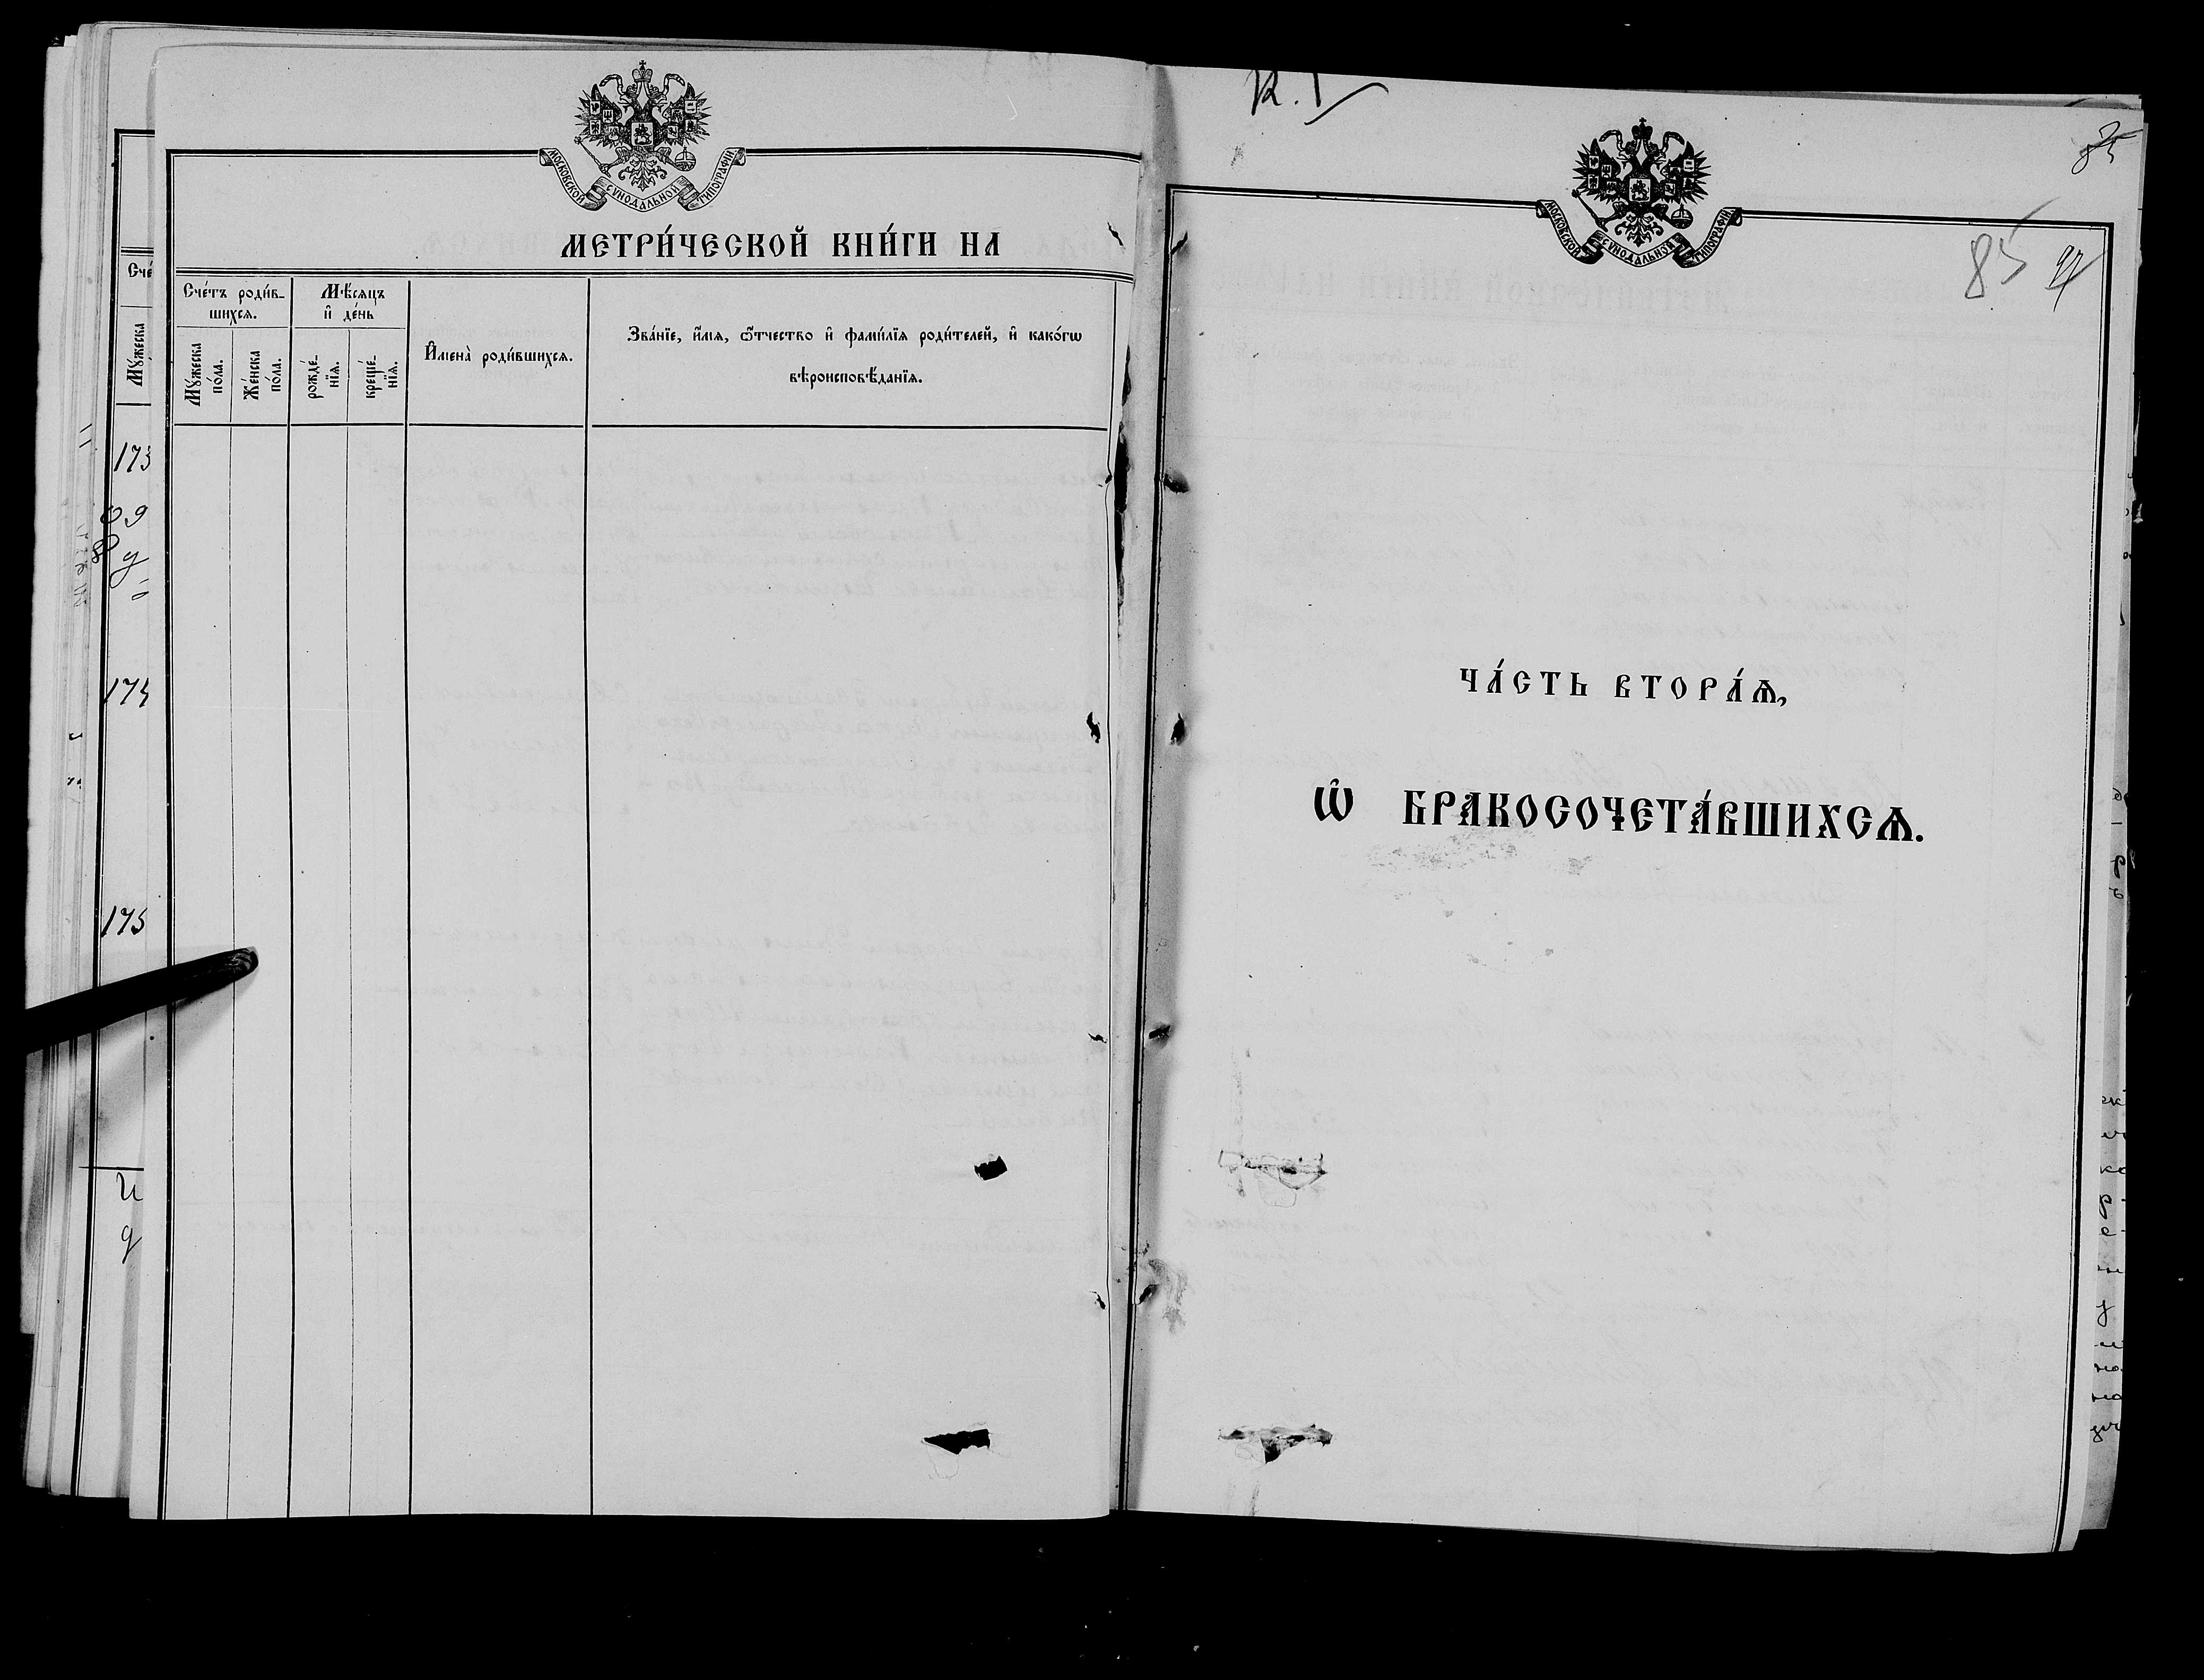 МОСКОВСКОЙ СѴНОДАЛЬНОЙ ТИПОГРАФІИ
МЕТРИ́ЧЕСКОЙ КНИ́ГИ НА
Сче́тъ роди́в-
шихсѧ.
Мѣ́сѧцъ
и҆ де́нь
И҆мена̀ роди́вшихсѧ.
Зва́нїе, и҆́мѧ, ѻ҆́тчество и҆ фами́лїѧ роди́телей, и҆ како́гѡ
вѣроисповѣ́данїѧ.
Мꙋ́жеска
по́ла.
Же́нска
по́ла.
рожде́-
нїѧ.
креще́-
нїѧ.
Сче́
Мꙋ́жеска
173
174
175
К. I
МОСКОВСКОЙ СѴНОДАЛЬНОЙ ТИПОГРАФІИ
85
ЧА́СТЬ ВТОРА́Ѧ,
Ѽ БРАКОСОЧЕТА́ВШИХСѦ.